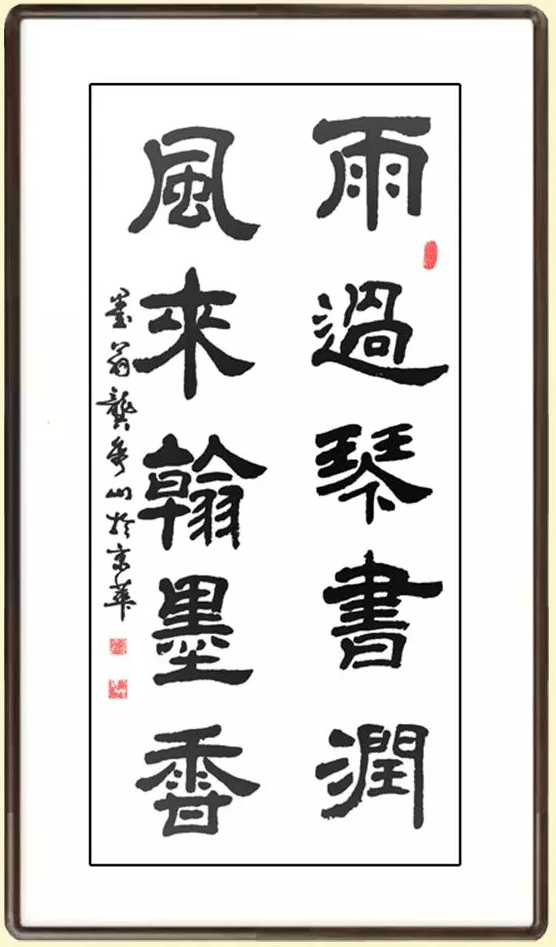 雨過琴書潤
風來翰墨香
墨翁龔秀山於京華